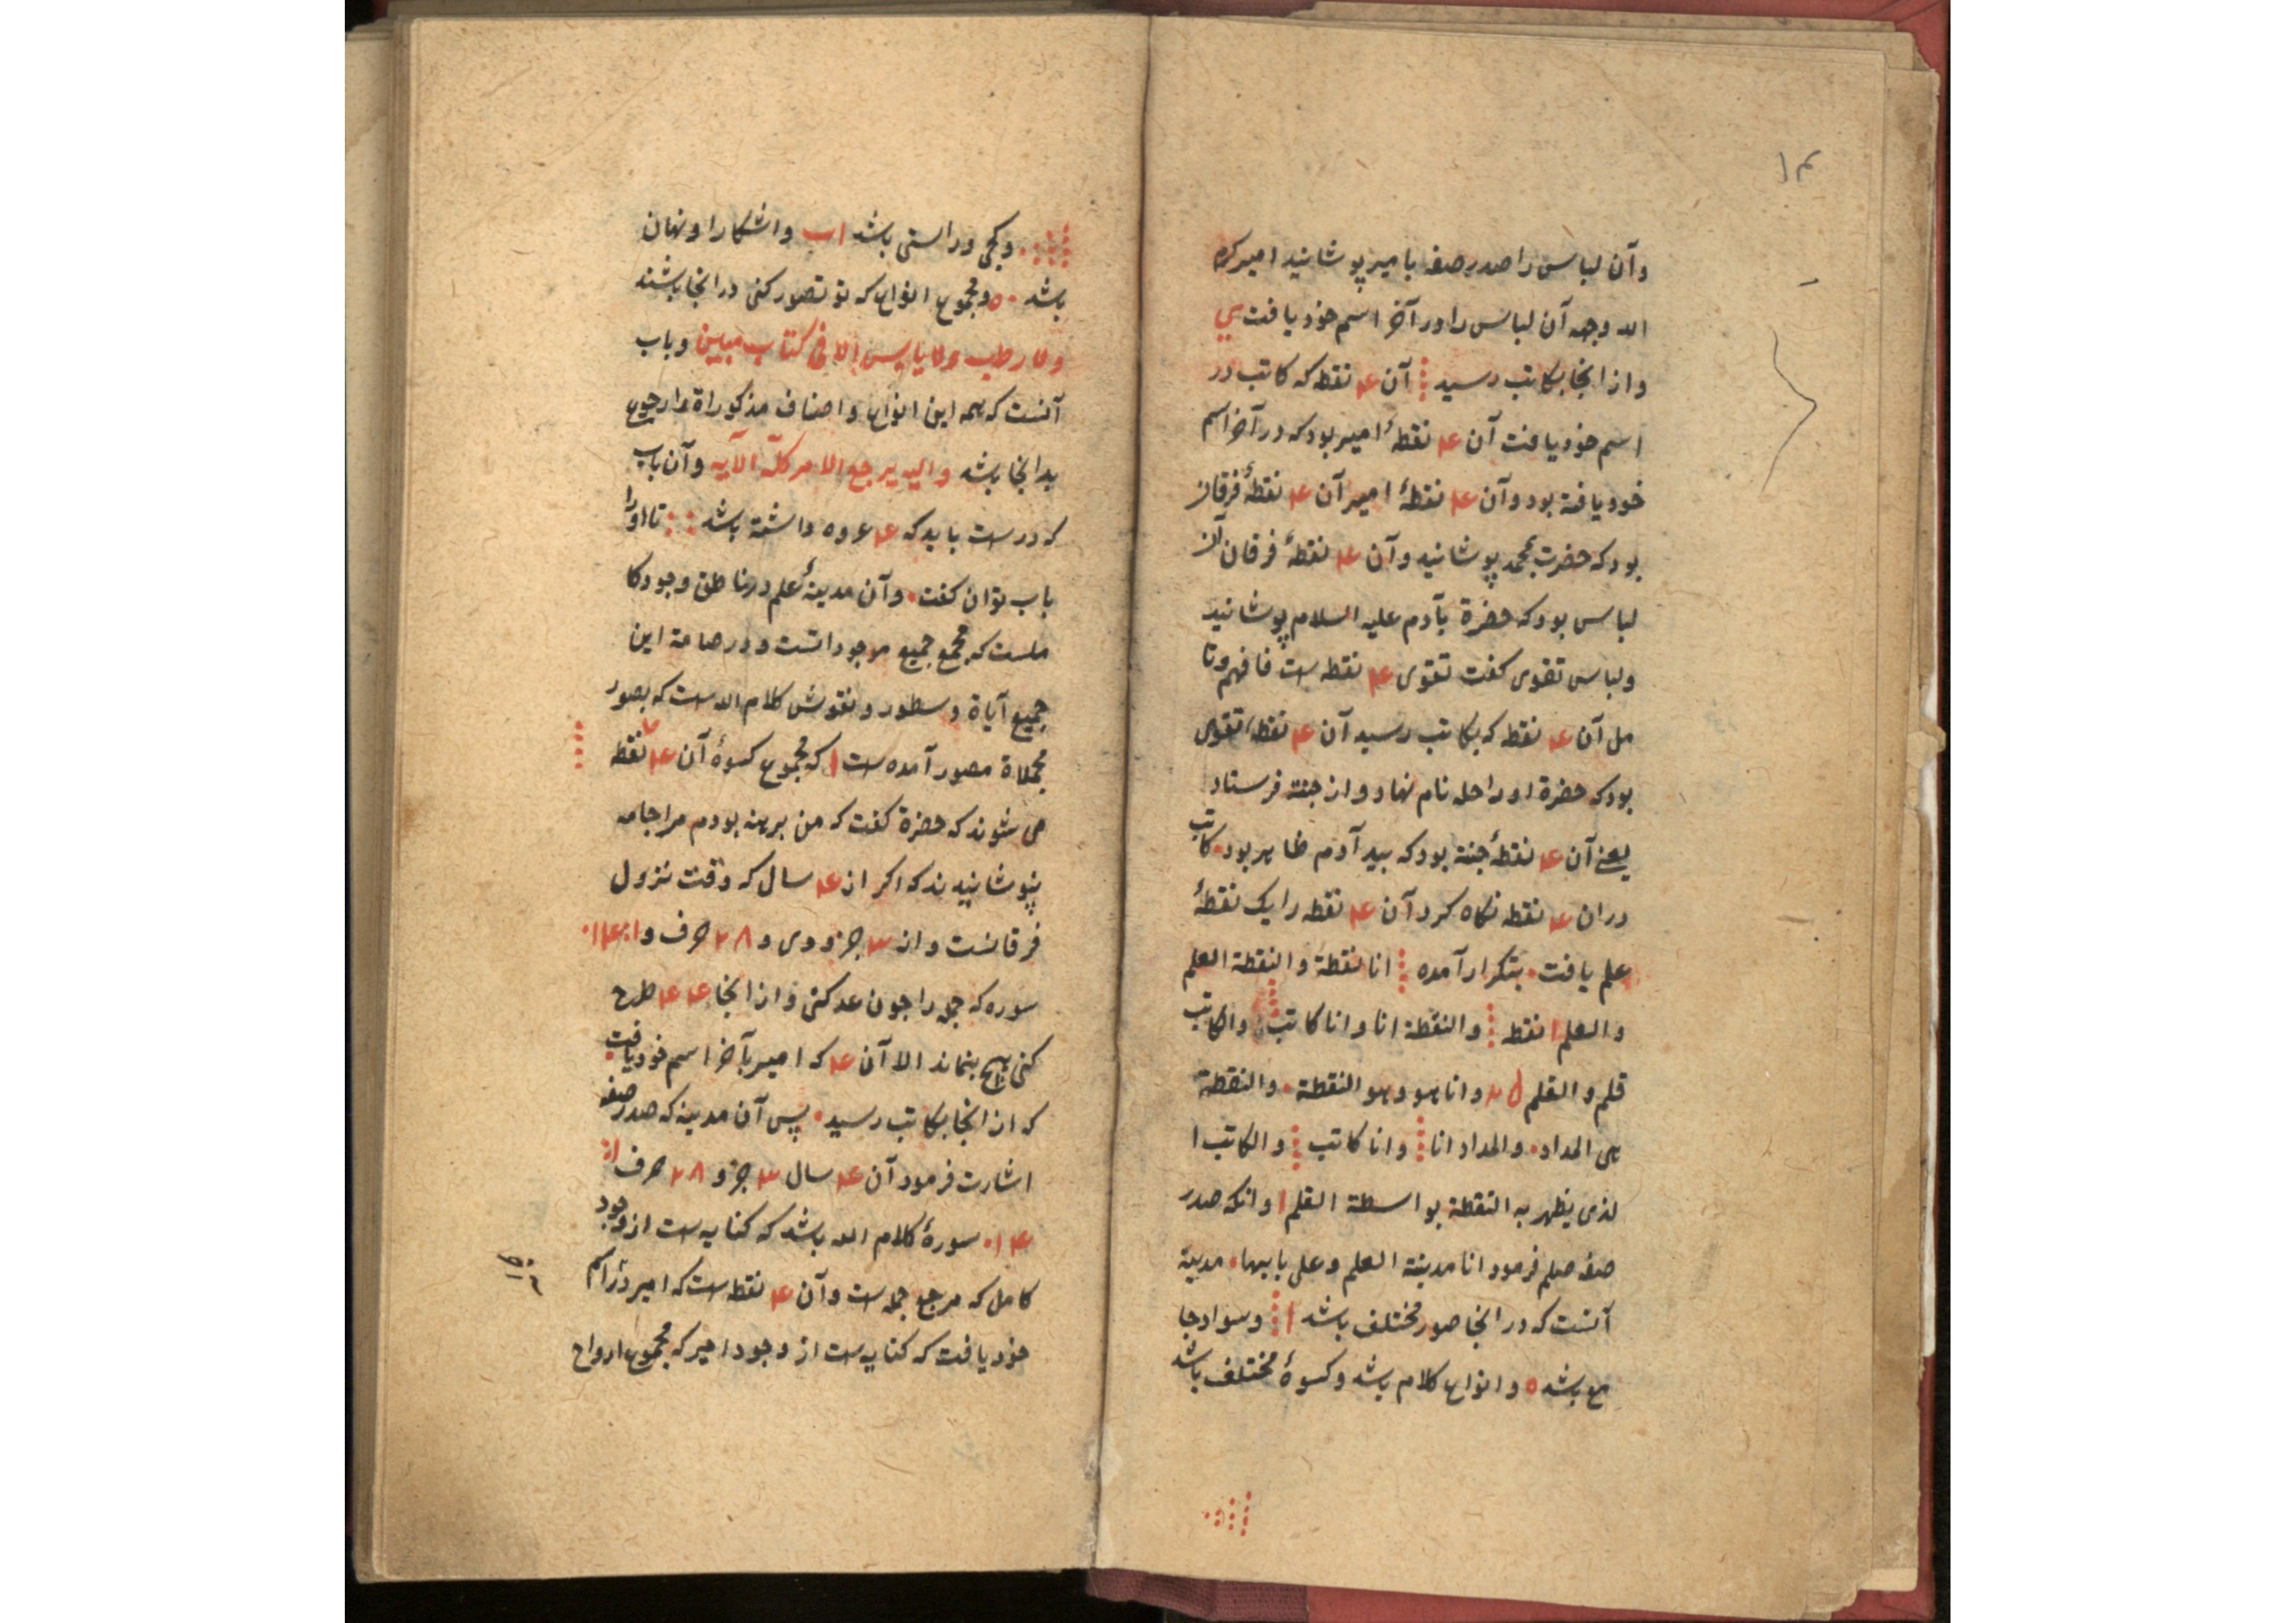 ۱۴
وآن لباس را صدر صفه بامیر پوشانید امیر کرم
الله وجهه آن لباس را در آخر اسم خود یافت ی
واز انجا بکاتب رسید آن ۴ نقطه که کاتب در
اسم خود یافت آن ۴ نقطۀ امیر بود که در آخر اسم
خود یافته بود وآن ۴ نقطۀ امیر آن ۴ نقطۀ فرقان
بود که حضرت بمحمد پوشانید وآن ۴ نقطۀ فرقان آن
لباس بود که حضرة بآدم علیه السلام پوشانید
ولباس تقوی کفت تقوی ۴ نقطه ست فافهم وتا
مل آن ۴ نقطه که بکاتب رسید آن ۴ نقطۀ تقوی
بود که حضرة او را حله نام نهاد و از جنة فرستاد
یعنے آن ۴ نقطۀ جنة بود که بید آدم ظاهر بود کاتب
دران ۴ نقطه نکاه کرد آن ۴ نقطه را یک نقطۀ
علم یافت بتکرار آمده انا نقطة و النقطة العلم
والعلم ا نقطه والنقطة انا وانا کاتب والکاتب
قلم و القلم وانا هو وهو النقطة والنقطة
هی المداد والمداد انا وانا کاتب والکاتب ا
لذی یظهر به النقطة بواسطة القلم ا وانکه صدر
صفه صلم فرمود انا مدینة العلم وعلی بابها مدینة
آنست که در انجا صور مختلف باشد ا وسواد جا
مع باشد ه وانواع کلام باشد وکسوۀ مختلف باشد
وکجی وراستی باشد اب واشکارا ونهان
باشد ه ومجموع انواع که تو تصور کنی در انجا باشند
ولا رطب ولا یابس الا فی کتاب مبین وباب
آنست که همه این انواع واصناف مذکوراة را رجوع
بدانجا باشد والیه یرجع الامر کله الآیه وآن باب
که درست باید که ۴ عروه داشته باشد تا او را
باب توان کفت وآن مدینۀ علم در ناطق وجود کا
ملست که مجمع جمیع موجوداتست ودر صامة این
جمیع آیاة وسطور ونقوش کلام الله ست که بصور
مجملاة مصور آمده ست ا که مجموع کسوۀ آن ۴ نقطه
می شوند که حضرة کفت که من برهنه بودم مرا جامه
پنوشانیدند که اکر از ۴ سال که وقت نزول
فرقانست واز ۳ جزو وی و ۲۸ حرف و ۱۱۴
سوره که جمله را جون عد کنی واز انجا ۴ ۴ طرح
کنی هیچ بنماند الا آن ۴ که امیر بآخر اسم خود یافت
که از انجا بکاتب رسید پس آن مدینه که صدر صفه
اشارت فرمود آن ۴ سال ۳ جزو ۲۸ حرف از
۱۱۴ سورۀ کلام الله باشد که کنایه ست از وجود
کامل که مرجع جمله ست وآن ۴ نقطه ست که امیر در اسم
خود یافت که کنایه ست از وجود امیر که مجموع ارواح